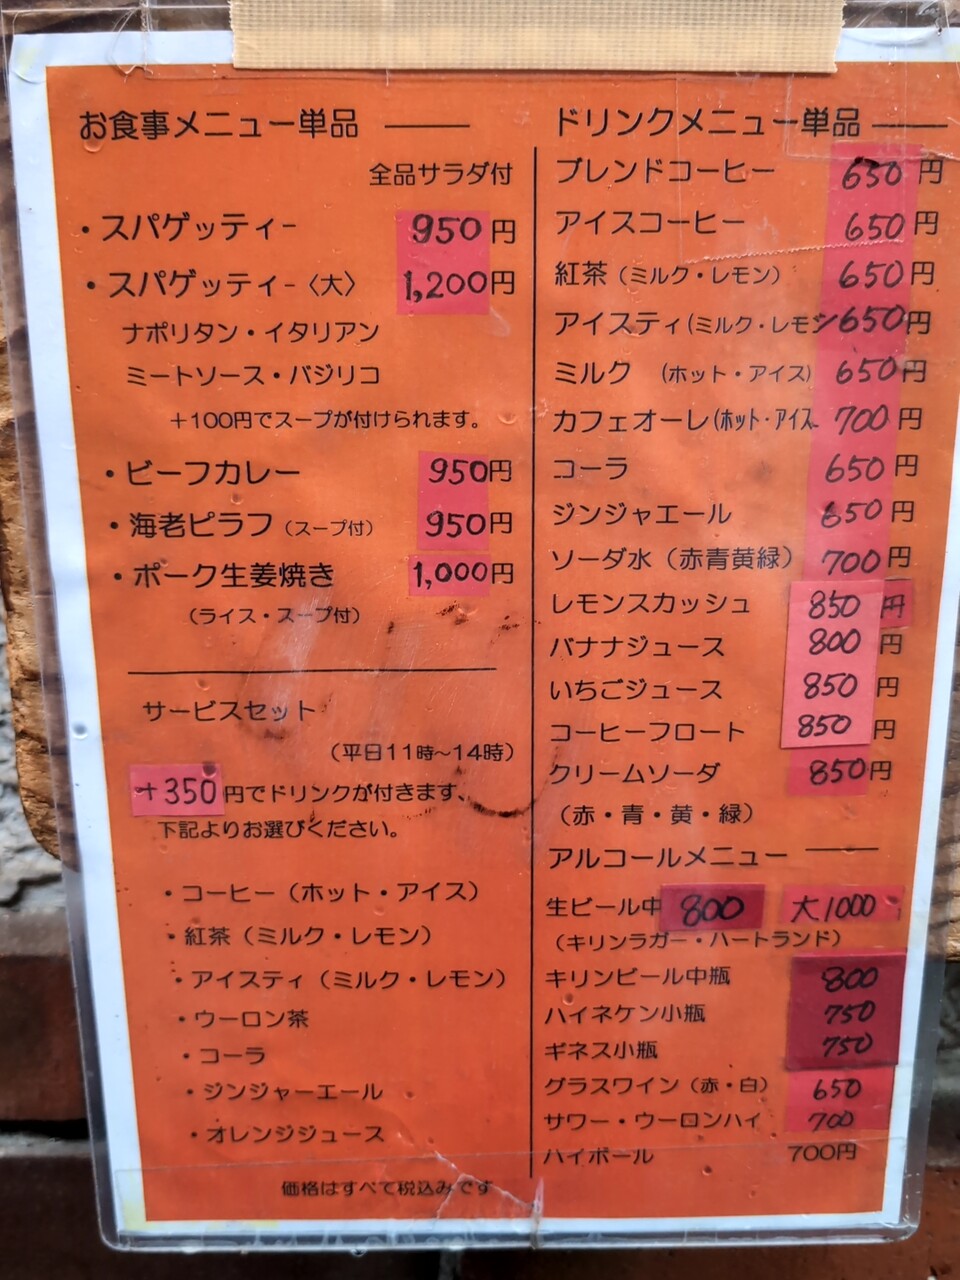 お食事メニュー単品
全品サラダ付
・スパゲッティ- 950円
・スパゲッティ-〈大〉 1,200円
ナポリタン・イタリアン
ミートソース・バジリコ
＋100円でスープが付けられます。
・ビーフカレー 950円
・海老ピラフ（スープ付） 950円
・ポーク生姜焼き 1,000円
（ライス・スープ付）
サービスセット
（平日11時～14時）
+350円でドリンクが付きます、
下記よりお選びください。
・コーヒー（ホット・アイス）
・紅茶（ミルク・レモン）
・アイスティ（ミルク・レモン）
・ウーロン茶
・コーラ
・ジンジャーエール
・オレンジジュース
価格はすべて税込みです
ドリンクメニュー単品
ブレンドコーヒー 650円
アイスコーヒー 650円
紅茶（ミルク・レモン） 650円
アイスティ(ミルク・レモン 650円
ミルク （ホット・アイス） 650円
カフェオーレ(ホット・アイス 700円
コーラ 650円
ジンジャエール 650円
ソーダ水（赤青黄緑） 700円
レモンスカッシュ 850円
バナナジュース 800円
いちごジュース 850円
コーヒーフロート 850円
クリームソーダ 850円
（赤・青・黄・緑）
アルコールメニュー
生ビール中 800 大1000
（キリンラガー・ハートランド）
キリンビール中瓶 800
ハイネケン小瓶 750
ギネス小瓶 750
グラスワイン（赤・白） 650
サワー・ウーロンハイ 700
ハイボール 700円